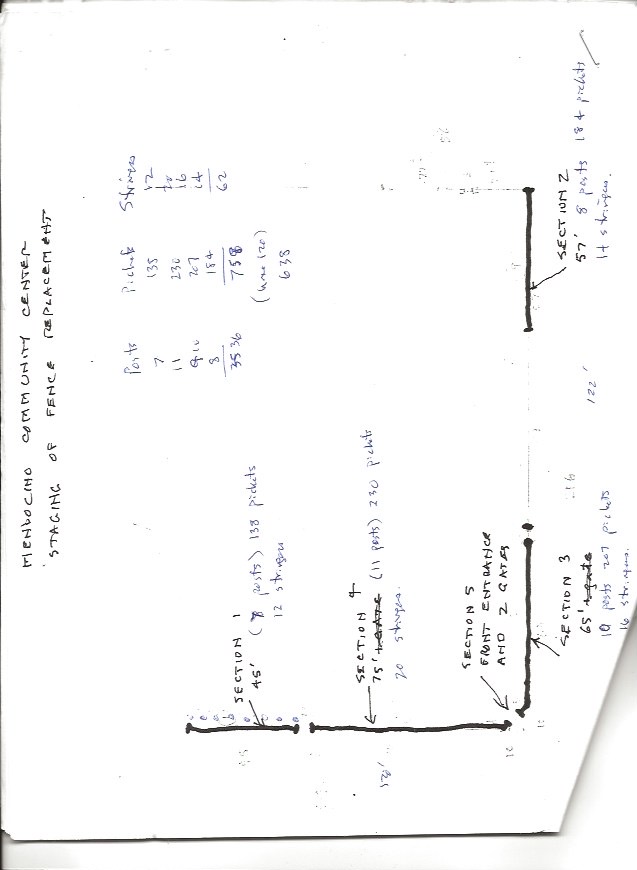 MENDOCINO COMMUNITY CENTER
STAGING OF FENCE REPLACEMENT
Posts Pickets Stringers
7 135 12
11 230 20
10 207 16
8 184 14
35 36 758 62
(have 120)
638
SECTION 1
45' ( posts) 138 pickets
12 stringers
SECTION 4
75' (11 posts) 230 pickets
20 stringers
120'
SECTION 5
FRONT ENTRANCE
AND 2 GATES
SECTION 3
65'
10 posts 207 pickets
16 stringers.
122'
SECTION 2
57' 8 posts 184 pickets
14 stringers.